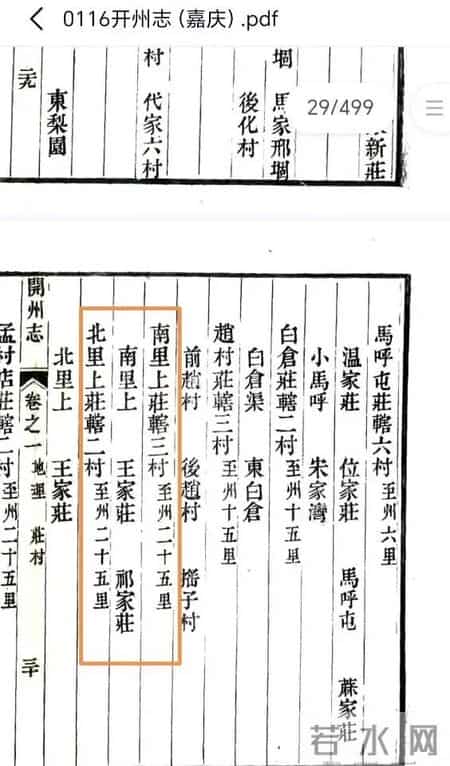 0116开州志 (嘉庆) .pdf
29/499
新莊
堌 馬家邢堌
後化村
村 代家六村
東梨園
元
馬呼屯莊轄六村 至州六里
温家莊 位家莊 馬呼屯 蔴家莊
小馬呼 朱家灣
白倉莊轄二村 至州十五里
白倉渠 東白倉
趙村莊轄三村 至州二十五里
前趙村 後趙村 搭子村
南里上莊轄三村 至州二十五里
南里上 王家莊 祁家莊
北里上莊轄二村 至州二十五里
北里上 王家莊
開州志 卷之一 地理 莊村 三十
孟村店莊轄二村 至州二十五里
若水网